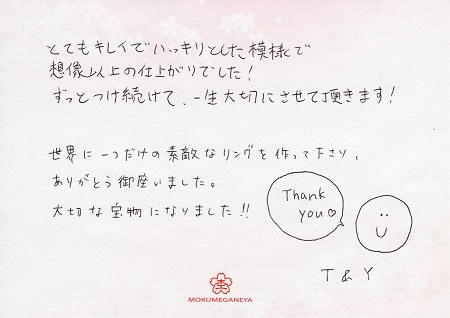 とてもキレイでハッキリとした模様で
想像以上の仕上がりでした!
ずっとつけ続けて、一生大切にさせて頂きます!
世界に一つだけの素敵なリングを作って下さり、
ありがとう御座いました。
大切な宝物になりました!!
Thank
you♡
T & Y
MOKUMEGANEYA